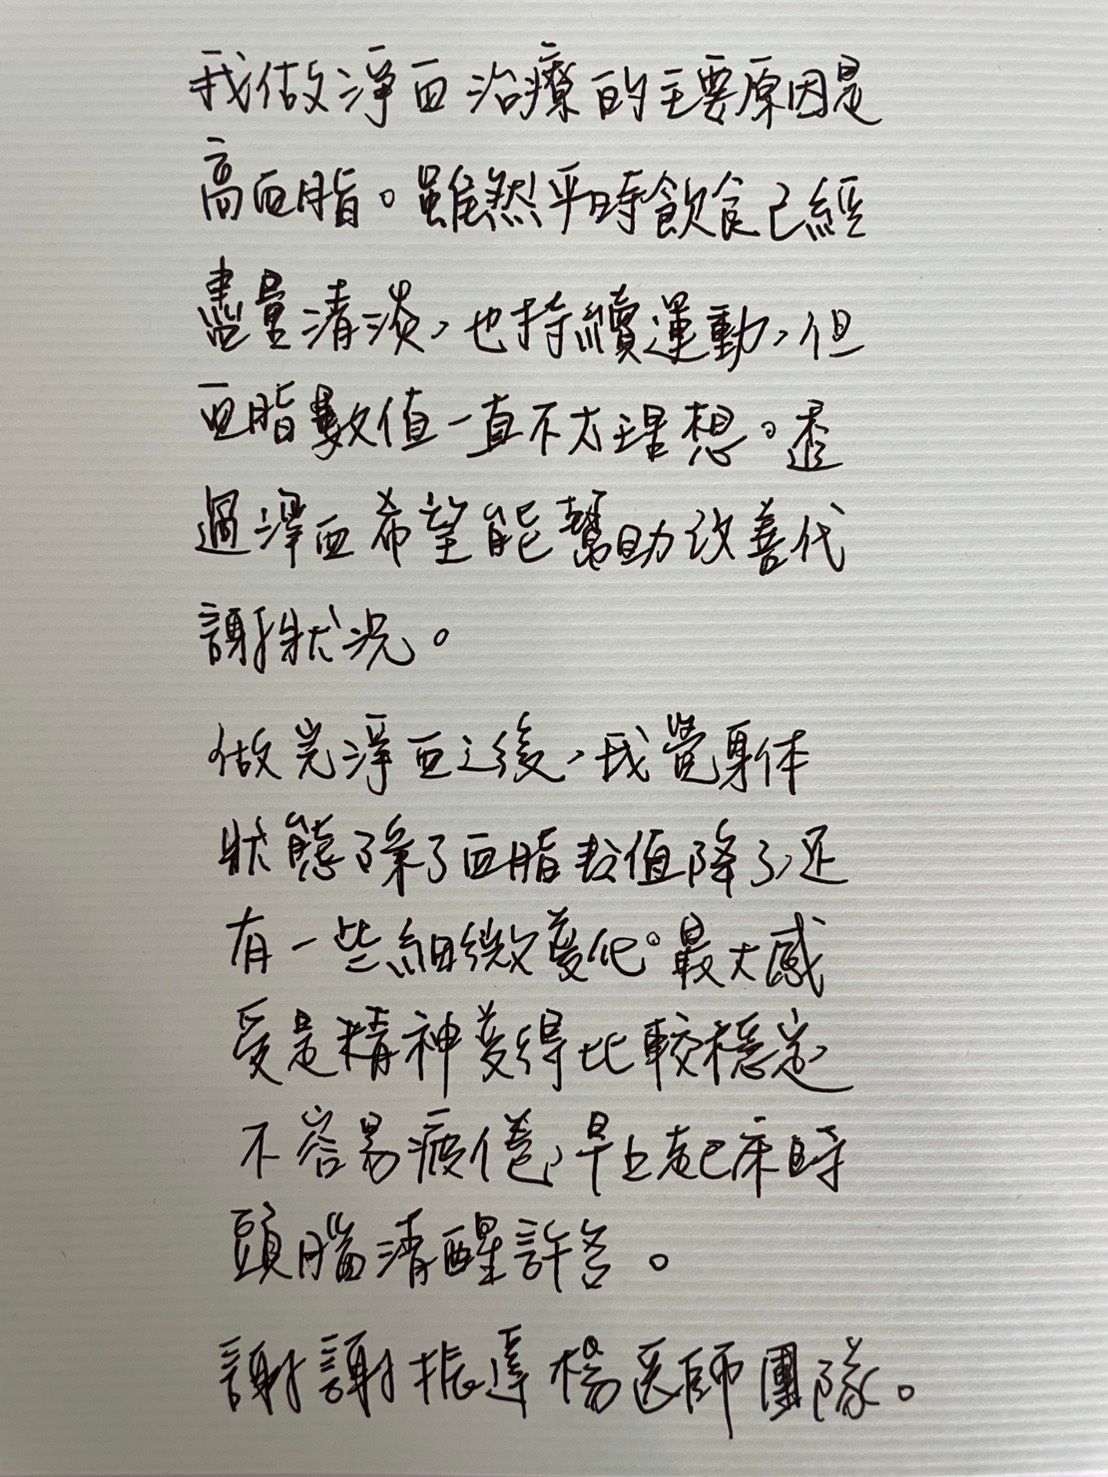 我做淨血治療的主要原因是
高血脂。雖然平時飲食已經
盡量清淡,也持續運動,但
血脂數值一直不太理想。透
過淨血希望能幫助改善代
謝狀況。
做完淨血之後,我覺身体
狀態除了血脂数值降了,还
有一些細微變化。最大感
受是精神變得比較穩定
不容易疲倦,早上起床時
頭腦清醒許多。
謝謝振達楊医師團隊。